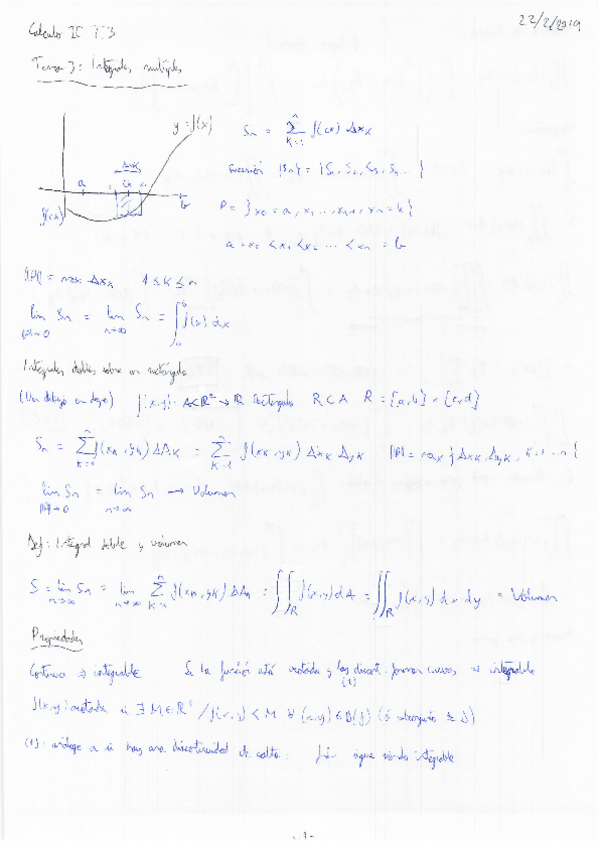 22/2/2019
Calculo II T3
Tema 3: Integrales multiples
y = f(x)
Sn = Σ f(ck) Δxk
k=1
sucesión {Sn} = {S1, S2, S3, S4 ... }
a
b
f(ck)
P = {x0 = a, x1, ... xn-1, xn = b}
a = x0 < x1 < x2 ... < xn = b
||P|| = max Δxk 1 ≤ k ≤ n
lim Sn = lim Sn = ∫ f(x) dx
||P||→0 n→∞
Integrales dobles sobre un rectángulo
(Ver dibujo en) f(x,y): A⊂R² → R Rectángulo R ⊂ A R = [a,b] × [c,d]
Sn = Σ f(xk, yk) ΔAk = Σ f(xk, yk) Δxk Δyk ||P|| = max { Δxk, Δyk, k=1...n }
lim Sn = lim Sn → Volumen
||P||→0 n→∞
Def: Integral doble y volumen
S = lim Sn = lim Σ f(xk, yk) ΔAk = ∬R f(x,y) dA = ∬R f(x,y) dx dy = Volumen
Propiedades
Continua ⇒ integrable Si la función está acotada y los discont. forman curvas ⇒ integrable
(1)
f(x,y) acotada si ∃ M ∈ R / f(x,y) < M ∀ (x,y) ∈ D(f) (ó subconjunto de D)
(1): análogo a si hay una discontinuidad de salto: sigue siendo integrable
-1-